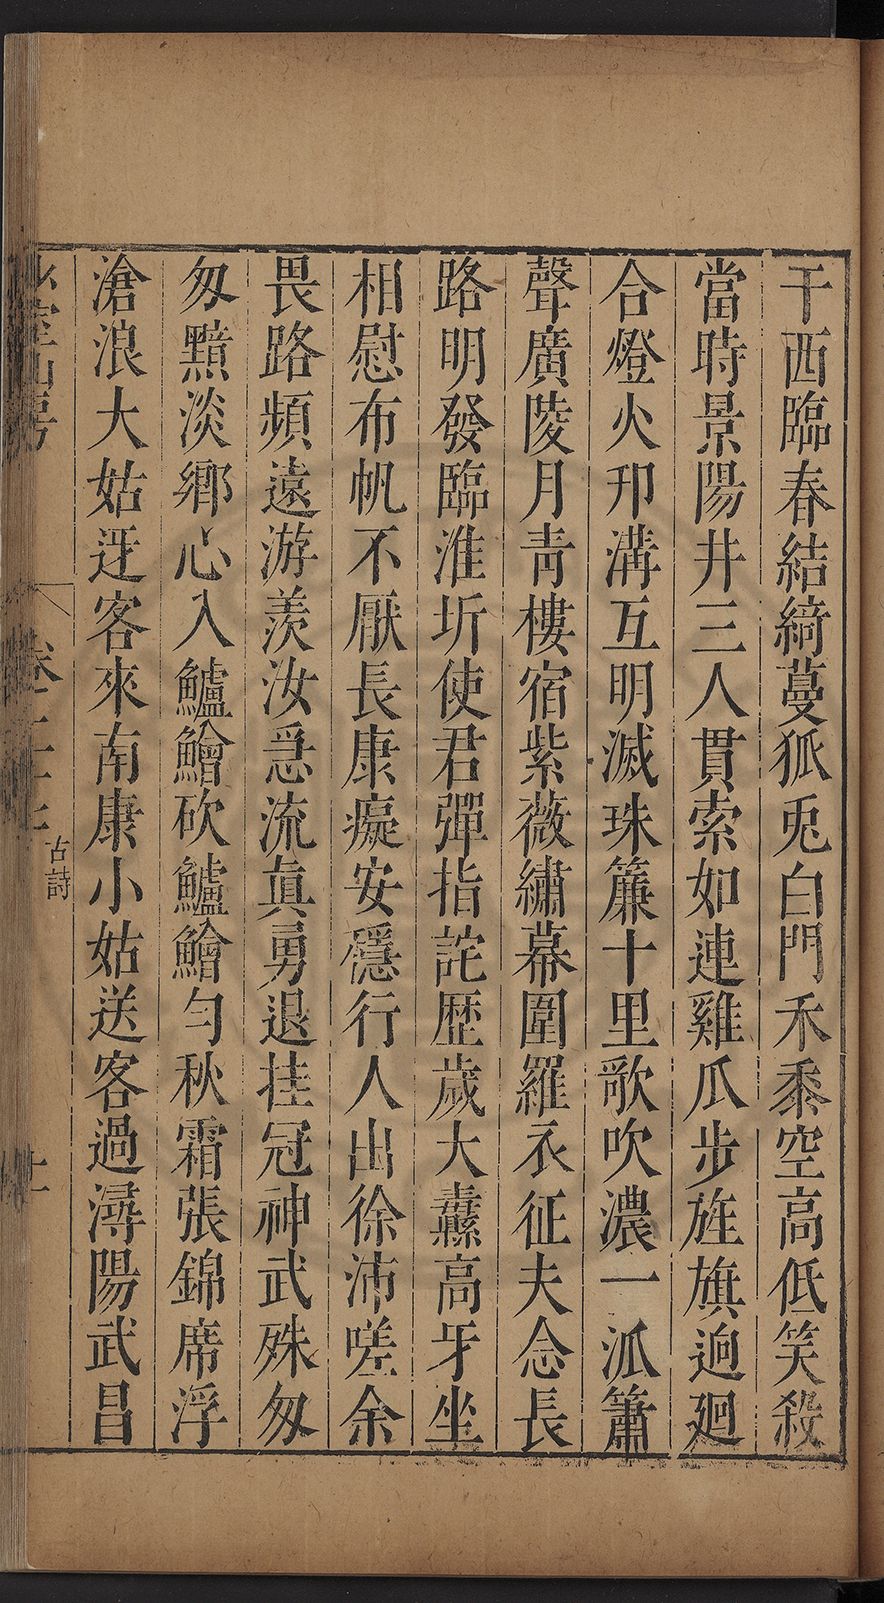 干西臨春結綺蔓狐兎白門禾黍空高低笑殺
當時景陽井三人貫索如連雞瓜步旌旗逈廻
合燈火邗溝互明滅珠簾十里歌吹濃一派簫
聲廣陵月青樓宿紫薇繡幕圍羅衣征夫念長
路明發臨淮圻使君彈指詫歴歲大纛高牙坐
相慰布帆不厭長康癡安穩行人出徐沛嗟余
畏路頻遠游羨汝急流眞勇退挂冠神武殊匆
匆黯淡鄉心入鱸鱠砍鱸鱠勻秋霜張錦席浮
滄浪大姑迓客來南康小姑送客過潯陽武昌
山房
卷二十七
古詩